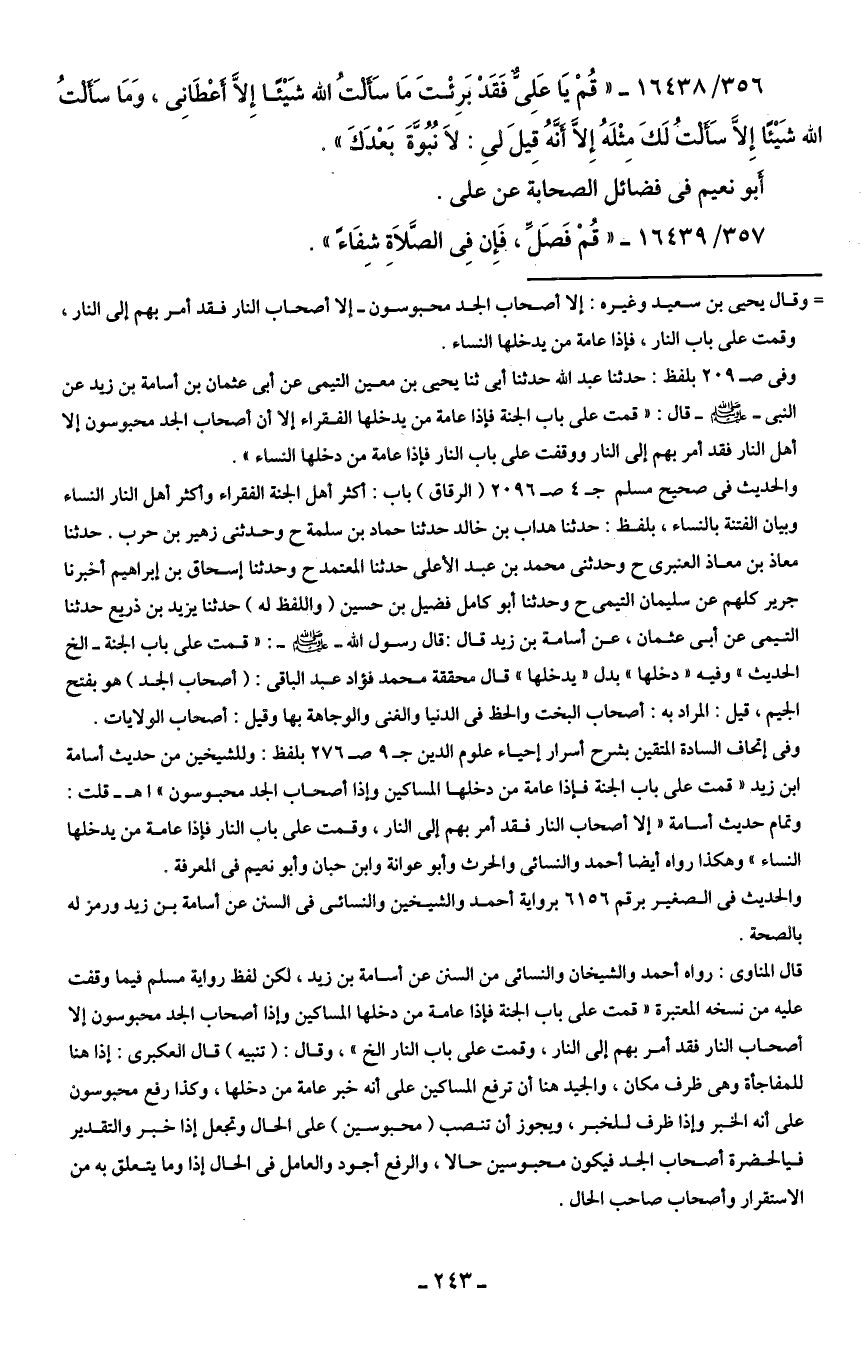 ١٦٤٣٨/٣٥٦ - « قُمْ يَا عَلِىُّ فَقَدْ بَرِئْتَ مَا سَأَلْتُ الله شَيْئًا إِلاَّ أَعْطَانِى ، وَمَا سَأَلْتُ
الله شَيْئًا إِلاَّ سَأَلْتُ لَكَ مِثْلَهُ إِلاَّ أَنَّهُ قِيلَ لِى : لاَ نُبُوَّةَ بَعْدَكَ » .
أبو نعيم فى فضائل الصحابة عن على .
١٦٤٣٩/٣٥٧ - « قُمْ فَصَلِّ ، فَإِن فِى الصَّلاَةِ شِفَاءً » .
= وقال يحيى بن سعيد وغيره : إلا أصحاب الجد محبوسون - إلا أصحاب النار فقد أمر بهم إلى النار ،
وقمت على باب النار ، فإذا عامة من يدخلها النساء .
وفى صـ ٢٠٩ بلفظ : حدثنا عبد الله حدثنا أبى ثنا يحيى بن معين التيمى عن أبى عثمان بن أسامة بن زيد عن
النبى - ﷺ - قال : « قمت على باب الجنة فإذا عامة من يدخلها الفقراء إلا أن أصحاب الجد محبوسون إلا
أهل النار فقد أمر بهم إلى النار ووقفت على باب النار فإذا عامة من دخلها النساء » .
والحديث فى صحيح مسلم جـ ٤ صـ ٢٠٩٦ ( الرقاق ) باب : أكثر أهل الجنة الفقراء وأكثر أهل النار النساء
وبيان الفتنة بالنساء ، بلفظ : حدثنا هداب بن خالد حدثنا حماد بن سلمة ح وحدثنى زهير بن حرب . حدثنا
معاذ بن معاذ العنبرى ح وحدثنى محمد بن عبد الأعلى حدثنا المعتمد ح وحدثنا إسحاق بن إبراهيم أخبرنا
جرير كلهم عن سليمان التيمى ح وحدثنا أبو كامل فضيل بن حسين ( واللفظ له ) حدثنا يزيد بن ذريع حدثنا
التيمى عن أبى عثمان ، عن أسامة بن زيد قال :قال رسول الله - ﷺ - : « قمت على باب الجنة - الخ
الحديث » وفيه « دخلها » بدل « يدخلها » قال محققة محمد فؤاد عبد الباقى : ( أصحاب الجد ) هو بفتح
الجيم ، قيل : المراد به : أصحاب البخت والحظ فى الدنيا والغنى والوجاهة بها وقيل : أصحاب الولايات .
وفى إتحاف السادة المتقين بشرح أسرار إحياء علوم الدين جـ ٩ صـ ٢٧٦ بلفظ : وللشيخين من حديث أسامة
ابن زيد « قمت على باب الجنة فإذا عامة من دخلها المساكين وإذا أصحاب الجد محبوسون » ا هـ - قلت :
وتمام حديث أسامة « إلا أصحاب النار فقد أمر بهم إلى النار ، وقمت على باب النار فإذا عامة من يدخلها
النساء » وهكذا رواه أيضا أحمد والنسائى والحرث وأبو عوانة وابن حبان وأبو نعيم فى المعرفة .
والحديث فى الصغير برقم ٦١٥٦ برواية أحمد والشيخين والنسائى فى السنن عن أسامة بن زيد ورمز له
بالصحة .
قال المناوى : رواه أحمد والشيخان والنسائى من السنن عن أسامة بن زيد ، لكن لفظ رواية مسلم فيما وقفت
عليه من نسخه المعتبرة « قمت على باب الجنة فإذا عامة من دخلها المساكين وإذا أصحاب الجد محبوسون إلا
أصحاب النار فقد أمر بهم إلى النار ، وقمت على باب النار الخ » ، وقال : ( تنبيه ) قال العكبرى : إذا هنا
للمفاجأة وهى ظرف مكان ، والجيد هنا أن ترفع المساكين على أنه خبر عامة من دخلها ، وكذا رفع محبوسون
على أنه الخبر وإذا ظرف للخبر ، ويجوز أن تنصب ( محبوسين ) على الحال وتجعل إذا خبر والتقدير
فيالحضرة أصحاب الجد فيكون محبوسين حالا ، والرفع أجود والعامل فى الحال إذا وما يتعلق به من
الاستقرار وأصحاب صاحب الحال .
- ٢٤٣ -